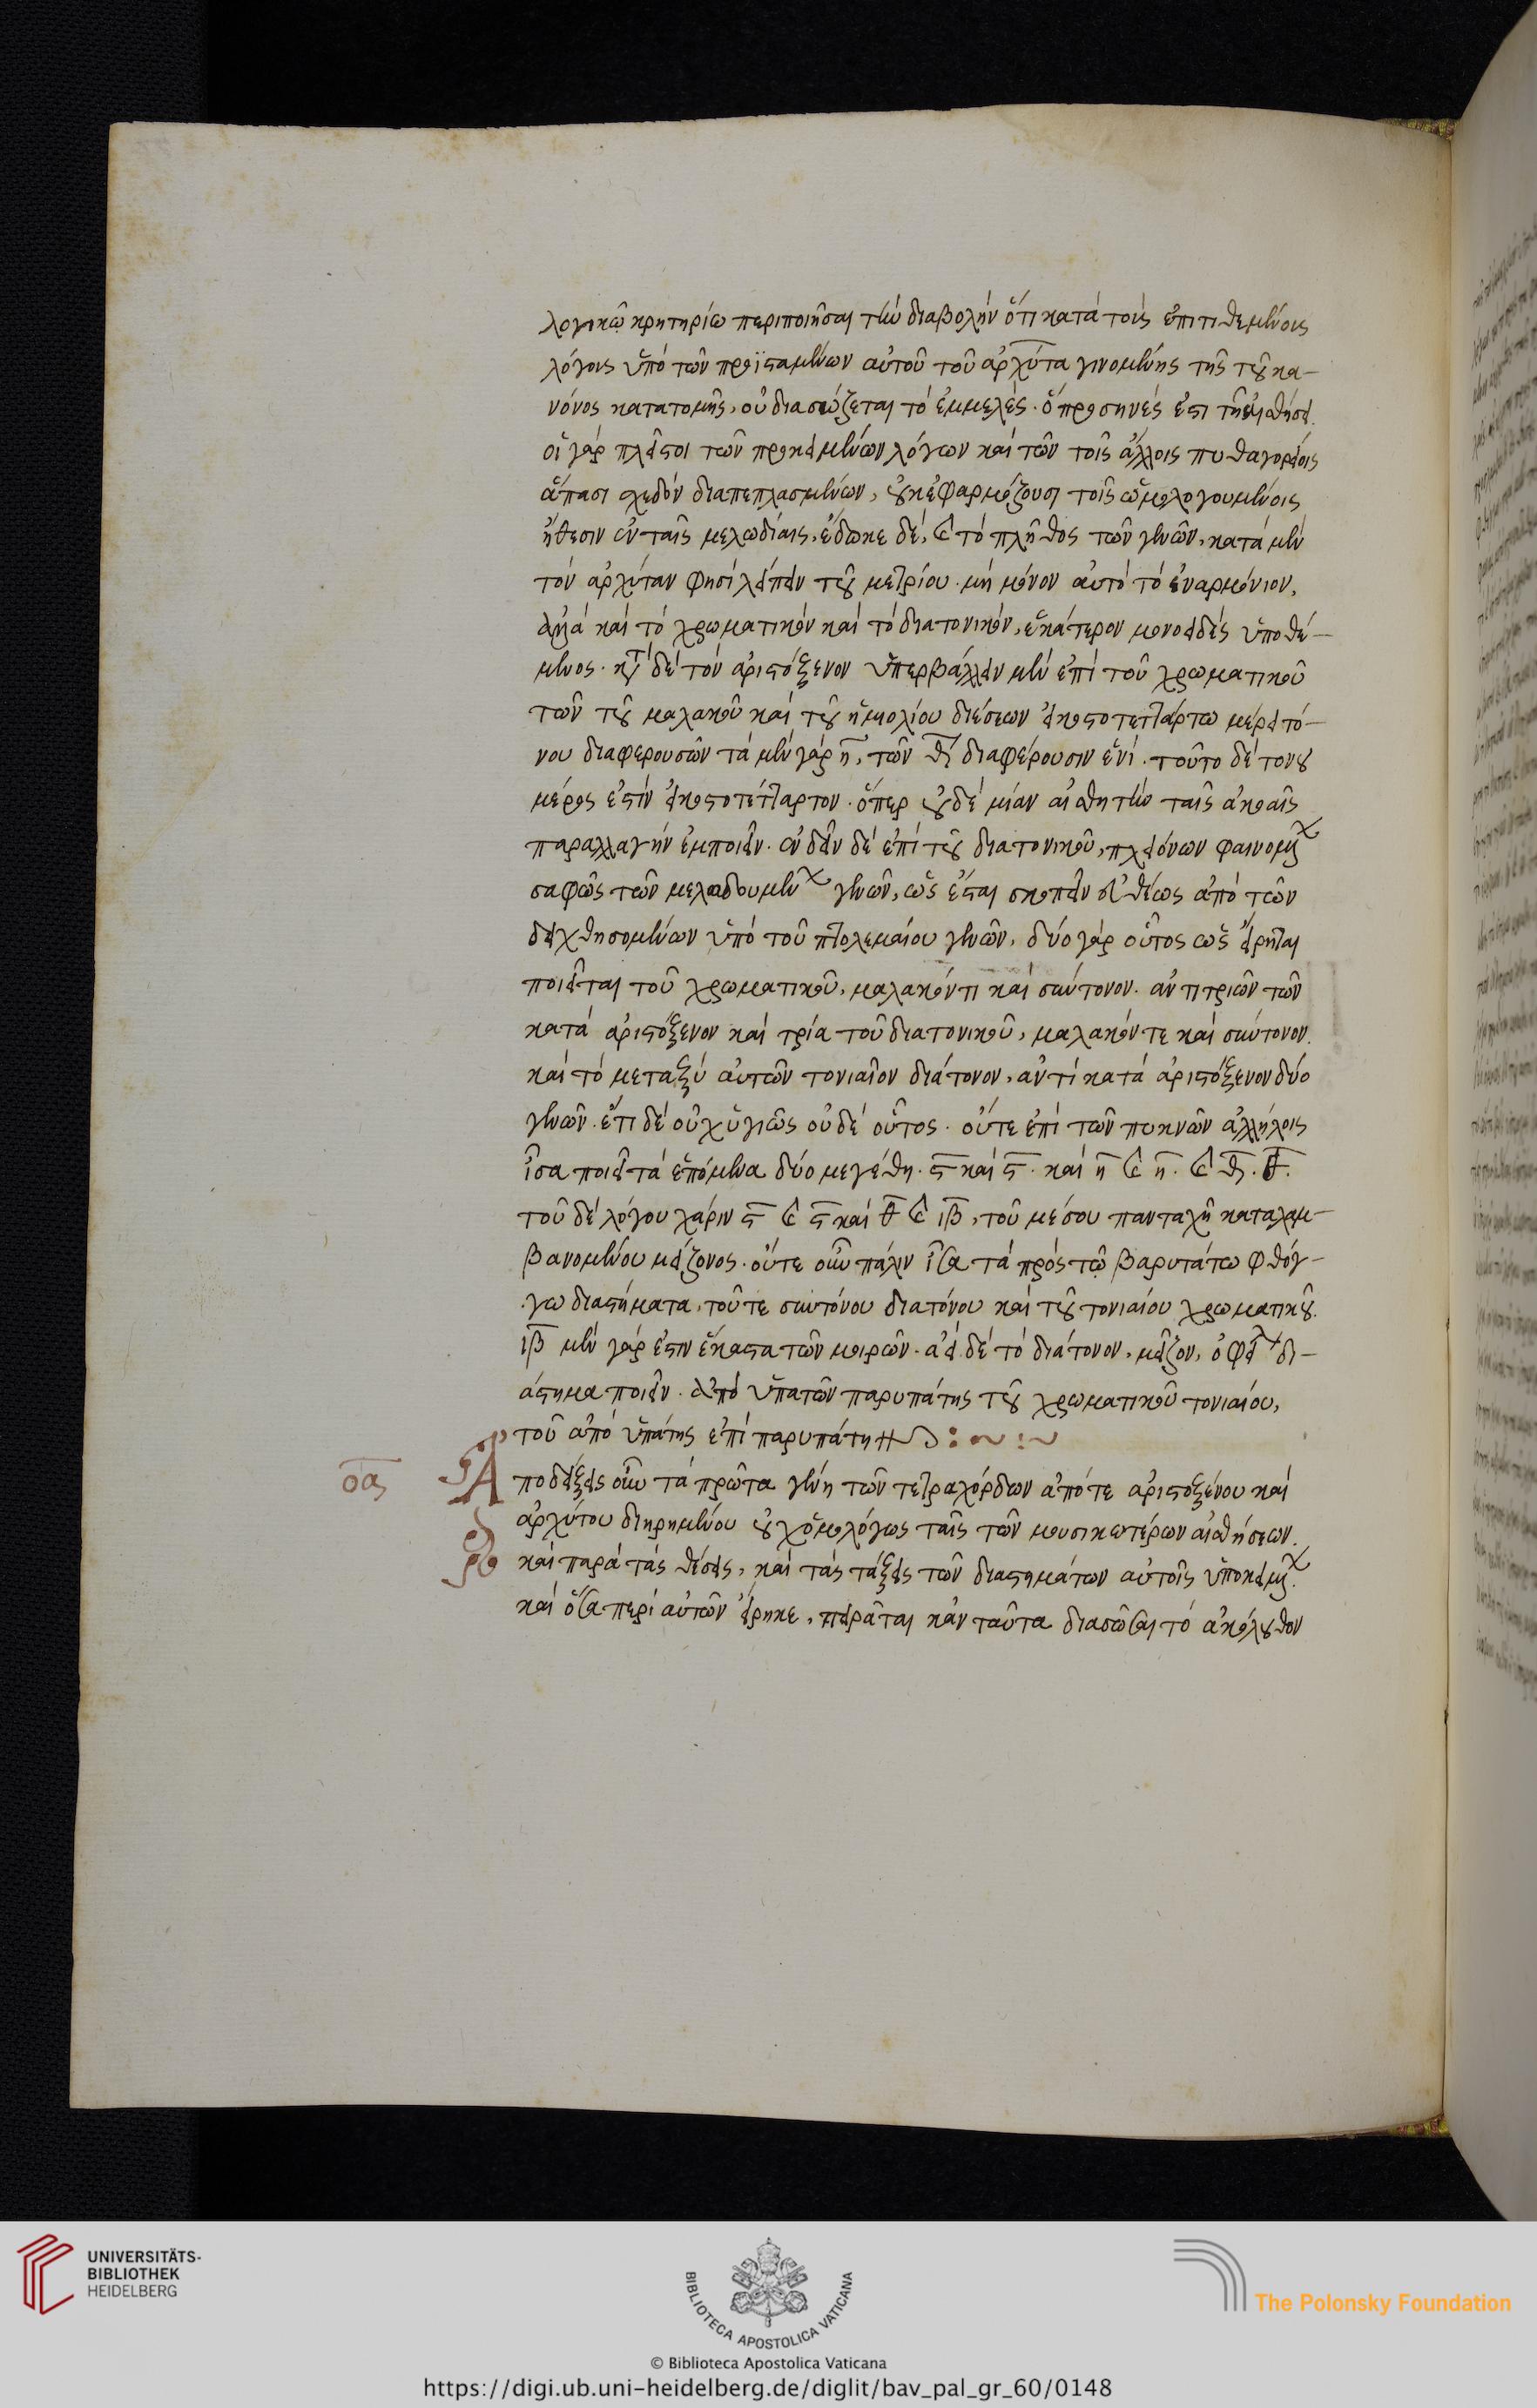 λογικῶ κρητηρίω περιποιῆσαι τὴν διαβολὴν ὅτι κατὰ τοὺς ἐπιτιθεμένους
λόγοις ὑπὸ τῶν προϊσταμένων αὐτοῦ τοῦ ἀρχύτα γινομένης τῆς τοῦ κα-
νόνος κατατομῆς, οὐ διασώζεται τὸ ἐμμελές. ὃ προσηνές ἐστι
οἱ γὰρ πλεῖστοι τῶν προκειμένων λόγων καὶ τῶν τοῖς ἄλλοις πυθαγορείοις
ἅπασι σχεδὸν διαπεπλασμένων, οὐκ ἐφαρμόζουσι τοῖς ὡμολογουμένοις
ἤθεσιν ἐν ταῖς μελωδίαις, ἔδωκε δὲ, καὶ τὸ πλῆθος τῶν γενῶν, κατὰ μὲν
τὸν ἀρχύταν φησὶ λείπειν τοῦ μετρίου. μὴ μόνον αὐτὸ τὸ ἐναρμόνιον,
ἀλλὰ καὶ τὸ χρωματικὸν καὶ τὸ διατονικὸν, ἑκάτερον μονοειδὲς ὑποθέ-
μενος. κατὰ δὲ τὸν ἀριστόξενον ὑπερβάλλειν μὲν ἐπὶ τοῦ χρωματικοῦ
τῶν τοῦ μαλακοῦ καὶ τοῦ ἡμιολίου διέσεων εἰκοστοτετάρτω μέρει τό-
νου διαφερουσῶν τὰ μὲν γὰρ η, τῶν θ διαφέρουσιν ἑνί. τοῦτο δὲ τόνου
μέρος ἐστὶν εἰκοστοτέταρτον. ὅπερ οὐδὲ μίαν αἰσθητὴν ταῖς ἀκοαῖς
παραλλαγὴν ἐμποιεῖν. ἐνδεῖν δὲ ἐπὶ τοῦ διατονικοῦ, πλειόνων φαινομένων
σαφῶς τῶν μελωδουμένων γενῶν, ὡς ἔσται σκοπεῖν εὐθέως ἀπὸ τῶν
δειχθησομένων ὑπὸ τοῦ πτολεμαίου γενῶν, δύο γὰρ οὗτος ὡς εἴρηται
ποιεῖται τοῦ χρωματικοῦ, μαλακόν τι καὶ σύντονον. ἀντὶ τριῶν τῶν
κατὰ ἀριστόξενον καὶ τρία τοῦ διατονικοῦ, μαλακόν τε καὶ σύντονον.
καὶ τὸ μεταξὺ αὐτῶν τονιαῖον διάτονον, ἀντὶ κατὰ ἀριστόξενον δύο
γενῶν. ἔτι δὲ οὐχ ὑγιῶς οὐδὲ οὗτος. οὔτε ἐπὶ τῶν πυκνῶν ἀλλήλοις
ἶσα ποιεῖ τὰ ἑπόμενα δύο μεγέθη. ϛ καὶ ϛ. καὶ η καὶ η. καὶ θ. θ.
τοῦ δὲ λόγου χάριν ϛ καὶ ϛ καὶ θ καὶ ιβ, τοῦ μέσου πανταχῆ καταλαμ-
βανομένου μείζονος. οὔτε οὖν πάλιν ἶσα τὰ πρὸς τῷ βαρυτάτω φθόγ-
γω διαστήματα, τοῦ τε συντόνου διατόνου καὶ τοῦ τονιαίου χρωματικοῦ.
ιβ μὲν γάρ ἐστιν ἕκαστα τῶν μοιρῶν. ἀεὶ δὲ τὸ διάτονον, μεῖζον, ὀφείλει δι-
άστημα ποιεῖν. ἀπὸ ὑπατῶν παρυπάτης τοῦ χρωματικοῦ τονιαίου,
τοῦ ἀπὸ ὑπάτης ἐπὶ παρυπάτην
οα Ἀποδείξεις οὖν τὰ πρῶτα γένη τῶν τετραχόρδων ἀπό τε ἀριστοξένου καὶ
ἀρχύτου διηρημένου οὐχ ὁμολόγως ταῖς τῶν μουσικωτέρων αἰσθήσεων.
καὶ παρὰ τὰς θέσεις, καὶ τὰς τάξεις τῶν διαστημάτων αὐτοῖς ὑποκειμένων.
καὶ ὅσα περὶ αὐτῶν εἴρηκε, πειρᾶται κἀν ταῦτα διασῶσαι τὸ ἀκόλουθον
UNIVERSITÄTS-
BIBLIOTHEK
HEIDELBERG
BIBLIOTECA APOSTOLICA VATICANA
© Biblioteca Apostolica Vaticana
The Polonsky Foundation
https://digi.ub.uni-heidelberg.de/diglit/bav_pal_gr_60/0148